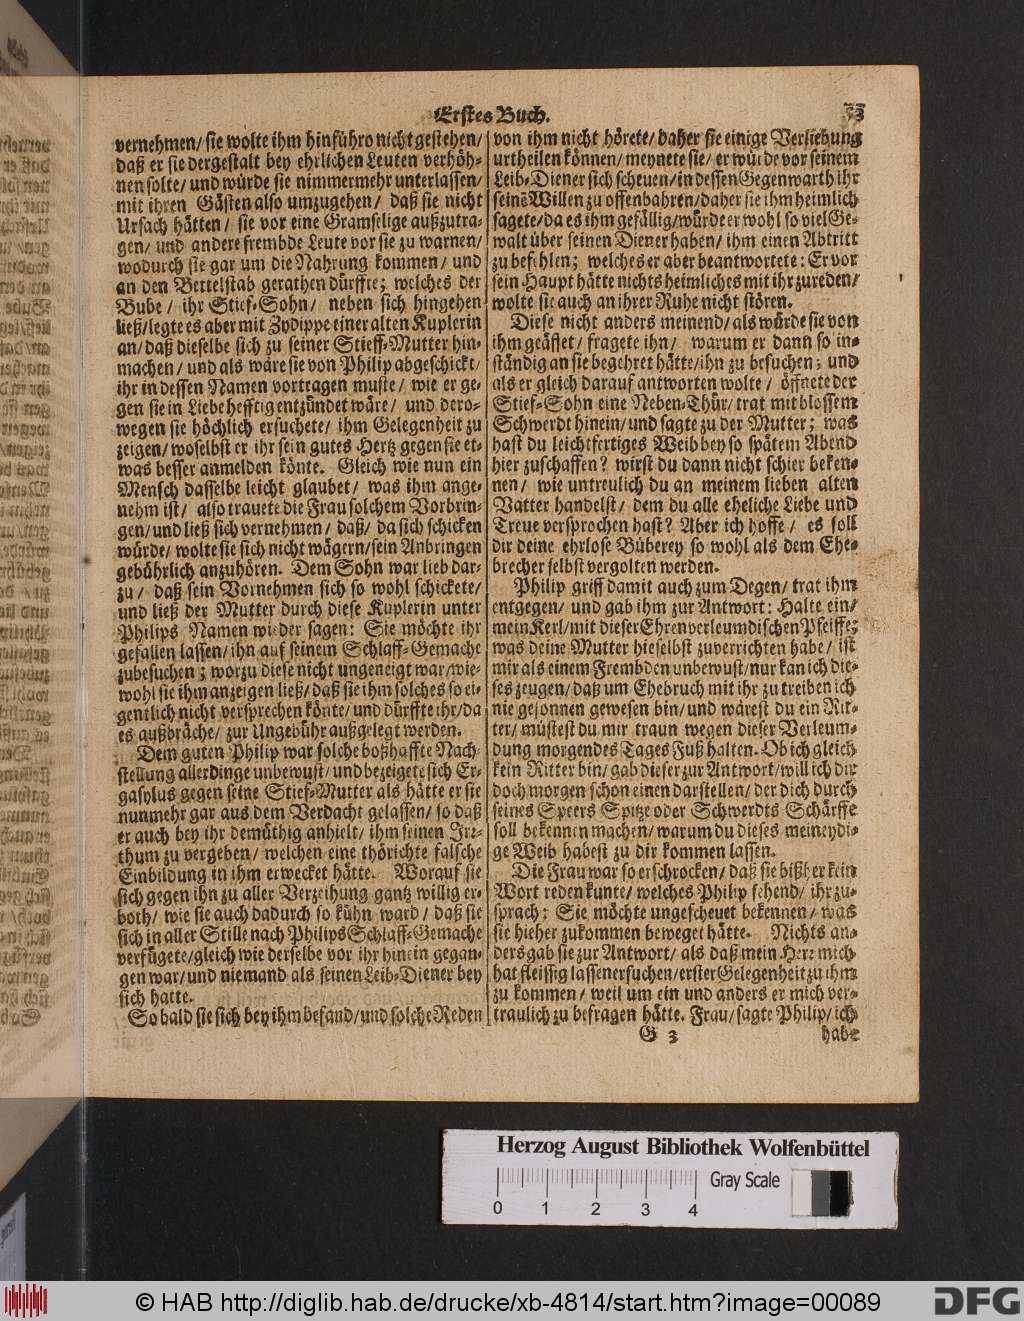 Erstes Buch. 53
vernehmen/ sie wolte ihm hinführo nicht gestehen/
daß er sie dergestalt bey ehrlichen Leuten verhöh-
nen solte/ und würde sie nimmermehr unterlassen/
mit ihren Gästen also umzugehen/ daß sie nicht
Ursach hätten/ sie vor eine Gramselige außzutra-
gen/ und andere frembde Leute vor sie zu warnen/
wodurch sie gar um die Nahrung kommen/ und
an den Bettelstab gerathen dürffte; welches der
Bube/ ihr Stief-Sohn/ neben sich hingehen
ließ/ legte es aber mit Zydippe einer alten Kuplerin
an/ daß dieselbe sich zu seiner Stieff-Mutter hin-
machen/ und als wäre sie von Philip abgeschickt/
ihr in dessen Namen vortragen muste/ wie er ge-
gen sie in Liebe hefftig entzündet wäre/ und dero-
wegen sie höchlich ersuchete/ ihm Gelegenheit zu
zeigen/ woselbst er ihr sein gutes Hertz gegen sie et-
was besser anmelden könte. Gleich wie nun ein
Mensch dasselbe leicht glaubet/ was ihm ange-
nehm ist/ also trauete die Frau solchem Vorbrin-
gen/ und ließ sich vernehmen/ daß/ da sich schicken
würde/ wolte sie sich nicht wägern/ sein Anbringen
gebührlich anzuhören. Dem Sohn war lieb dar-
zu/ daß sein Vornehmen sich so wohl schickete/
und ließ der Mutter durch diese Kuplerin unter
Philips Namen wieder sagen: Sie möchte ihr
gefallen lassen/ ihn auf seinem Schlaff-Gemache
zubesuchen; worzu diese nicht ungeneigt war/ wie-
wohl sie ihm anzeigen ließ/ daß sie ihm solches so ei-
gentlich nicht versprechen könte/ und dürffte ihr/ da
es außbräche/ zur Ungebühr außgelegt werden.
Dem guten Philip war solche boßhaffte Nach-
stellung allerdinge unbewust/ und bezeigete sich Er-
gasylus gegen seine Stief-Mutter als hätte er sie
nunmehr gar aus dem Verdacht gelassen/ so daß
er auch bey ihr demüthig anhielt/ ihm seinen Irr-
thum zu vergeben/ welchen eine thörichte falsche
Einbildung in ihm erwecket hätte. Worauf sie
sich gegen ihn zu aller Verzeihung gantz willig er-
both/ wie sie auch dadurch so kühn ward/ daß sie
sich in aller Stille nach Philips Schlaff-Gemache
verfügete/ gleich wie derselbe vor ihr hinein gegan-
gen war/ und niemand als seinen Leib-Diener bey
sich hatte.
So bald sie sich bey ihm befand/ und solche Reden
von ihm nicht hörete/ daher sie einige Verliebung
urtheilen können/ meynete sie/ er würde vor seinem
Leib-Diener sich scheuen/ in dessen Gegenwarth ihr
seinē Willen zu offenbahren/ daher sie ihm heimlich
sagete/ da es ihm gefällig/ würde er wohl so viel Ge-
walt über seinen Diener haben/ ihm einen Abtritt
zu befehlen; welches er aber beantwortete: Er vor
sein Haupt hätte nichts heimliches mit ihr zu reden/
wolte sie auch an ihrer Ruhe nicht stören.
Diese nicht anders meinend/ als würde sie von
ihm geäffet/ fragete ihn/ warum er dann so in-
ständig an sie begehret hätte/ ihn zu besuchen; und
als er gleich darauf antworten wolte/ öffnete der
Stief-Sohn eine Neben-Thür/ trat mit blossem
Schwerdt hinein/ und sagte zu der Mutter; was
hast du leichtfertiges Weib bey so spätem Abend
hier zuschaffen? wirst du dann nicht schier beken-
nen/ wie untreulich du an meinem lieben alten
Vatter handelst/ dem du alle eheliche Liebe und
Treue versprochen hast? Aber ich hoffe/ es soll
dir deine ehrlose Büberey so wohl als dem Ehe-
brecher selbst vergolten werden.
Philip griff damit auch zum Degen/ trat ihm
entgegen/ und gab ihm zur Antwort: Halte ein/
mein Kerl/ mit dieser Ehrenverleumdischen Pfeiffe;
was deine Mutter hieselbst zuverrichten habe/ ist
mir als einem Frembden unbewust/ nur kan ich die-
ses zeugen/ daß um Ehebruch mit ihr zu treiben ich
nie gesonnen gewesen bin/ und wärest du ein Rit-
ter/ müstest du mir traun wegen dieser Verleum-
dung morgendes Tages Fuß halten. Ob ich gleich
kein Ritter bin/ gab dieser zur Antwort/ will ich dir
doch morgen schon einen darstellen/ der dich durch
seines Speers Spitze oder Schwerdts Schärffe
soll bekennen machen/ warum du dieses meineydi-
ge Weib habest zu dir kommen lassen.
Die Frau war so erschrocken/ daß sie bißher kein
Wort reden kunte/ welches Philip sehend/ ihr zu-
sprach: Sie möchte ungescheuet bekennen/ was
sie hieher zukommen beweget hätte. Nichts an-
ders gab sie zur Antwort/ als daß mein Herr mich
hat fleissig lassen ersuchen/ erster Gelegenheit zu ihm
zu kommen/ weil um ein und anders er mich ver-
traulich zu befragen hätte. Frau/ sagte Philip/ ich
G 3 habe
Herzog August Bibliothek Wolfenbüttel
Gray Scale
0 1 2 3 4
© HAB http://diglib.hab.de/drucke/xb-4814/start.htm?image=00089
DFG